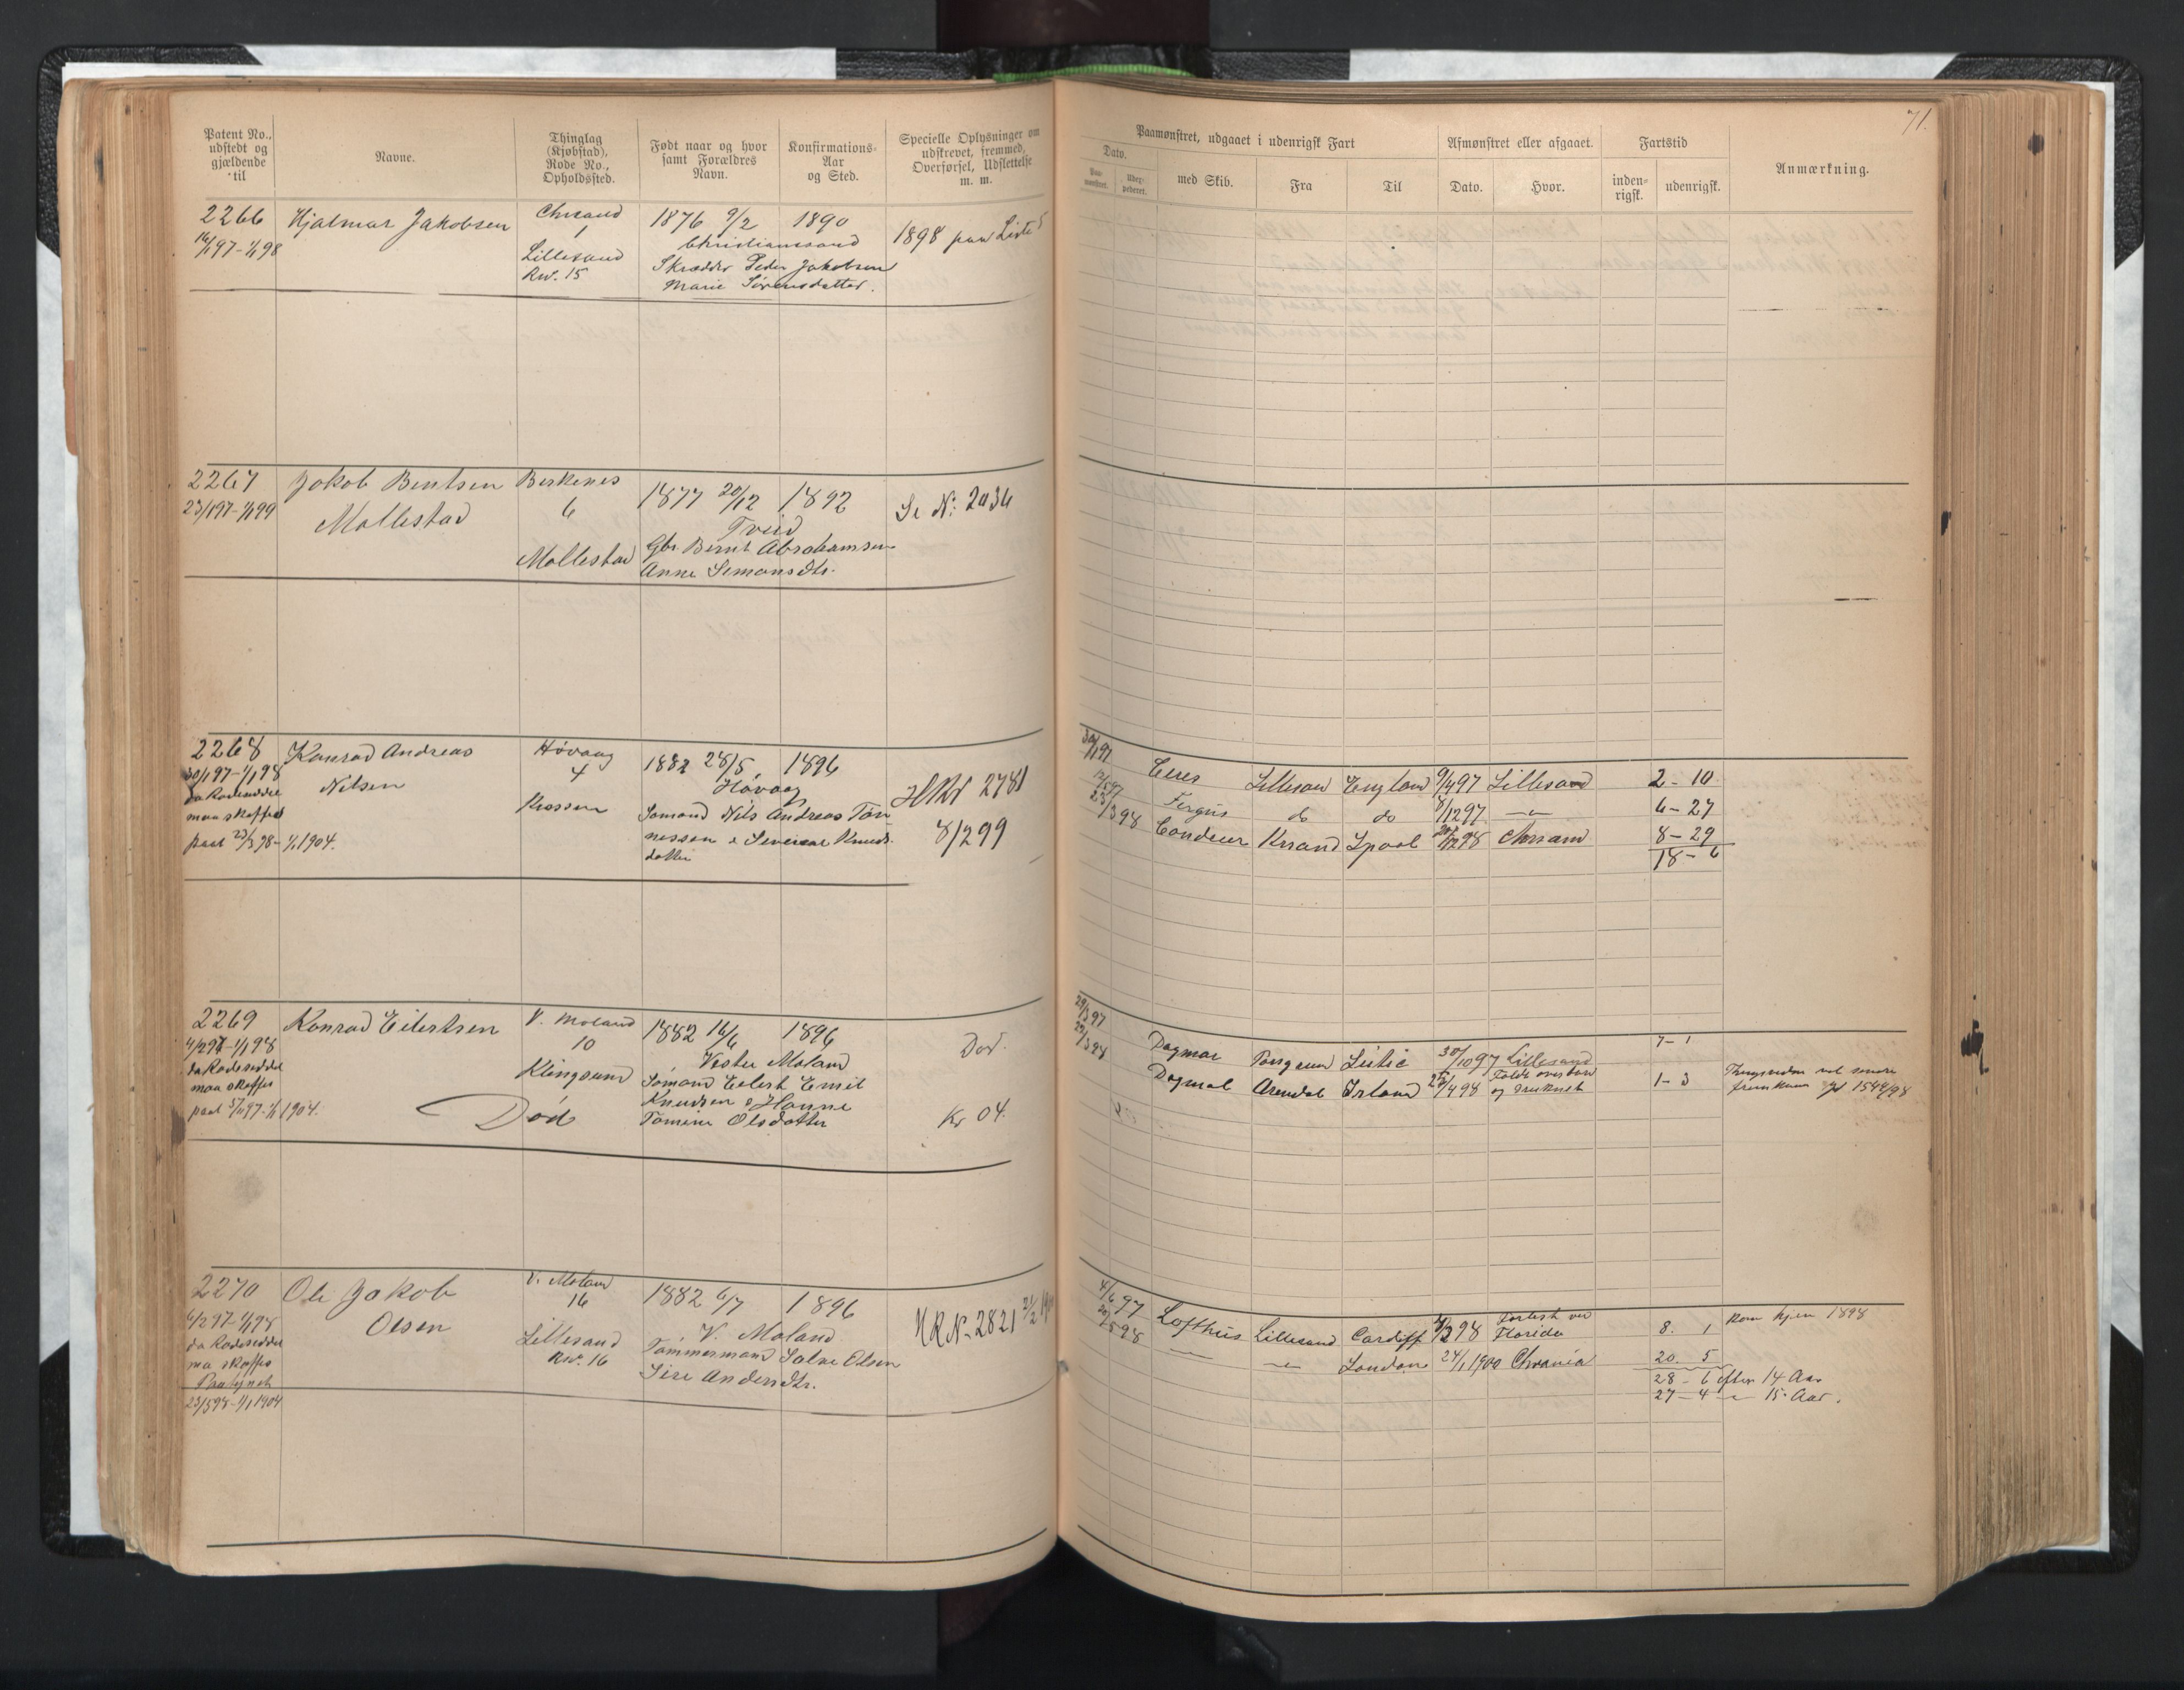 71.
Patent No., udstedt og gjældende til
Navne.
Thinglag (Kjøbstad), Rode No., Opholdssted.
Født naar og hvor samt Forældres Navn.
Konfirmations-Aar og Sted.
Specielle Oplysninger om udskrevet, fremmed, Overførsel, Udslettelse m. m.
Paamønstret, udgaaet i udenrigsk Fart
Dato.
Paa-mønstret.
Uder-pederet.
med Skib.
Fra
Til
Afmønstret eller afgaaet.
Dato.
Hvor.
Fartstid
inden-rigsk.
udenrigsk.
Anmærkning.
2266 Hjalmar Jakobsen Chrsand 1876 9/2 1890
16/1 97 - 1/1 98 1 Christianssand 1898 paa Liste
Lillesand Skrædder Peder Jakobsen
Rno. 15 Marie Sørensdatter.
2267 Jakob Bentsen Birkenes 1877 20/12 1892 Se N: 2036
23/1 97 - 1/1 99 Mollestad 6 Tveid
Mollestad Gbr. Bernt Abrahamsen
Anne Simonsdtr.
2268 Konrad Andreas Høvaag 1882 28/5 1896
30/1 97 - 1/1 98 Nilsen 4 Høvaag HRN 2781
da Rodeseddel Krossen Sømand Nils Andreas Tøn
maa skaffes nessen & Severine Knuds- 8/2 99
paat 23/3 98 - 1/1 1904. datter
30/1 97 Ceres Lillesand England 9/4 97 Lillesand 2 - 10
12/5 97 Fergus do do 8/12 97 — 6 - 27
23/3 98 Condeur Krsand Lpool 20/12 98 Chrsand 8 - 29
18 - 6
2269 Konrad Eilertsen V. Moland 1882 16/6 1896 Død.
4/2 97 - 1/1 98 10 Vestre Moland
da Rodeseddel Klingsund Sømand Eilert Emil
maa skaffes Knudsen & Hanne
paat 5/11 97 - 1/1 1904. Død Tomine Olsdatter Kr 04.
29/3 97 Dagmar Porsgrund Listie 30/10 97 Lillesand 7 - 1
23/3 98 Dagmar Arendal Irland 25/4 98 Faldt overbord og druknet 1 - 3 1544/98
2270 Ole Jakob V. Moland 1882 6/7 1896
6/2 97 - 1/1 98 Olsen 16 V. Moland HRN. 2821
da Rodeseddel Lillesand Tømmermand Salve Olsen
ma skaffes Rno. 16 Sire Andersdtr.
Paategnet
23/5 98 - 1/1 1904
4/6 97 Lofthus Lillesand Cardiff 4/2 98 Forlist ved Florida 8. 1 Kom hjem 1898
20/5 98 — — London 24/1 1900 Chrania 20. 5
28 - 6 efter 14 Aar
27 - 4 — 15. Aar.